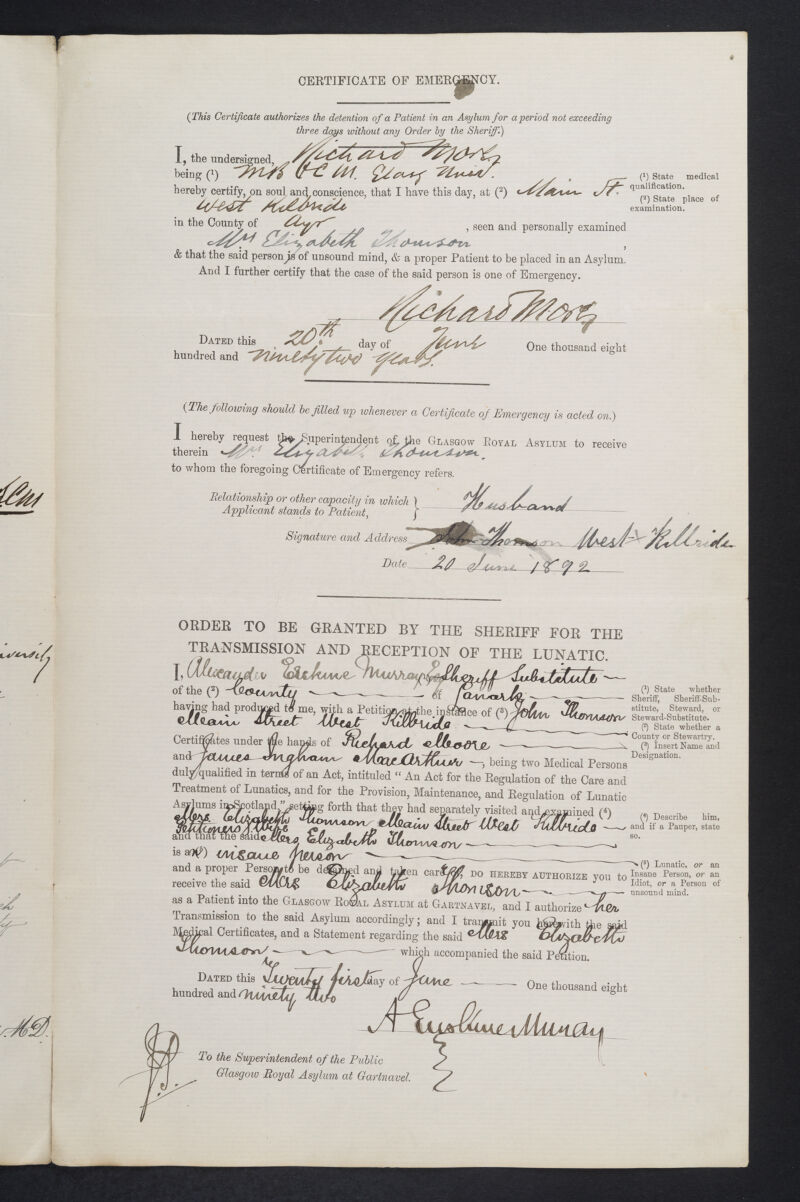 CERTIFICATE OF EMERGENCY.
(This Certificate authorizes the detention of a Patient in an Asylum for a period not exceeding
three days without any Order by the Sheriff.)
I, the undersigned, Richard Moore
being (1) M.B. & C.M. Glasg Univ.
hereby certify, on soul and conscience, that I have this day, at (2) Main St.
West Kilbride
in the County of Ayr, seen and personally examined
Mrs Elizabeth Thomson,
& that the said person is of unsound mind, & a proper Patient to be placed in an Asylum.
And I further certify that the case of the said person is one of Emergency.
(1) State medical
qualification.
(2) State place of
examination.
Richard Moore
DATED this 20th day of June One thousand eight
hundred and ninety two years.
(The following should be filled up whenever a Certificate of Emergency is acted on.)
I hereby request the Superintendent of the GLASGOW ROYAL ASYLUM to receive
therein Mrs Elizabeth Thomson.
to whom the foregoing Certificate of Emergency refers.
Relationship or other capacity in which
Applicant stands to Patient, } Husband
Signature and Address John Thomson West Kilbride
Date 20 June 1892
ORDER TO BE GRANTED BY THE SHERIFF FOR THE
TRANSMISSION AND RECEPTION OF THE LUNATIC.
I, Alexander Erskine Murray Esq Sheriff Substitute
of the (2) County of Lanark
having had produced to me, with a Petition at the instance of (3) John Thomson
Main Street West Kilbride
Certificates under the hands of Richard Moore
and James Ingham MacArthur, being two Medical Persons
duly qualified in terms of an Act, intituled "An Act for the Regulation of the Care and
Treatment of Lunatics, and for the Provision, Maintenance, and Regulation of Lunatic
Asylums in Scotland," setting forth that they had separately visited and examined (4)
Mrs Elizabeth Thomson Main Street West Kilbride
Petitioners Wife
and that the said Mrs Elizabeth Thomson
is a(n) (5) insane person
and a proper Person to be detained and taken care of, DO HEREBY AUTHORIZE you to
receive the said Mrs Elizabeth Thomson
as a Patient into the GLASGOW ROYAL ASYLUM AT GARTNAVEL, and I authorize her
Transmission to the said Asylum accordingly; and I transmit you herewith the said
Medical Certificates, and a Statement regarding the said Mrs Elizabeth
Thomson which accompanied the said Petition.
(1) State whether
Sheriff, Sheriff-Sub-
stitute, Steward, or
Steward-Substitute.
(2) State whether a
County or Stewartry.
(3) Insert Name and
Designation.
(4) Describe him,
and if a Pauper, state
so.
(5) Lunatic, or an
Insane Person, or an
Idiot, or a Person of
unsound mind.
DATED this Twenty first day of June One thousand eight
hundred and ninety two
A Erskine Murray
To the Superintendent of the Public
Glasgow Royal Asylum at Gartnavel.
&CM
M.D.